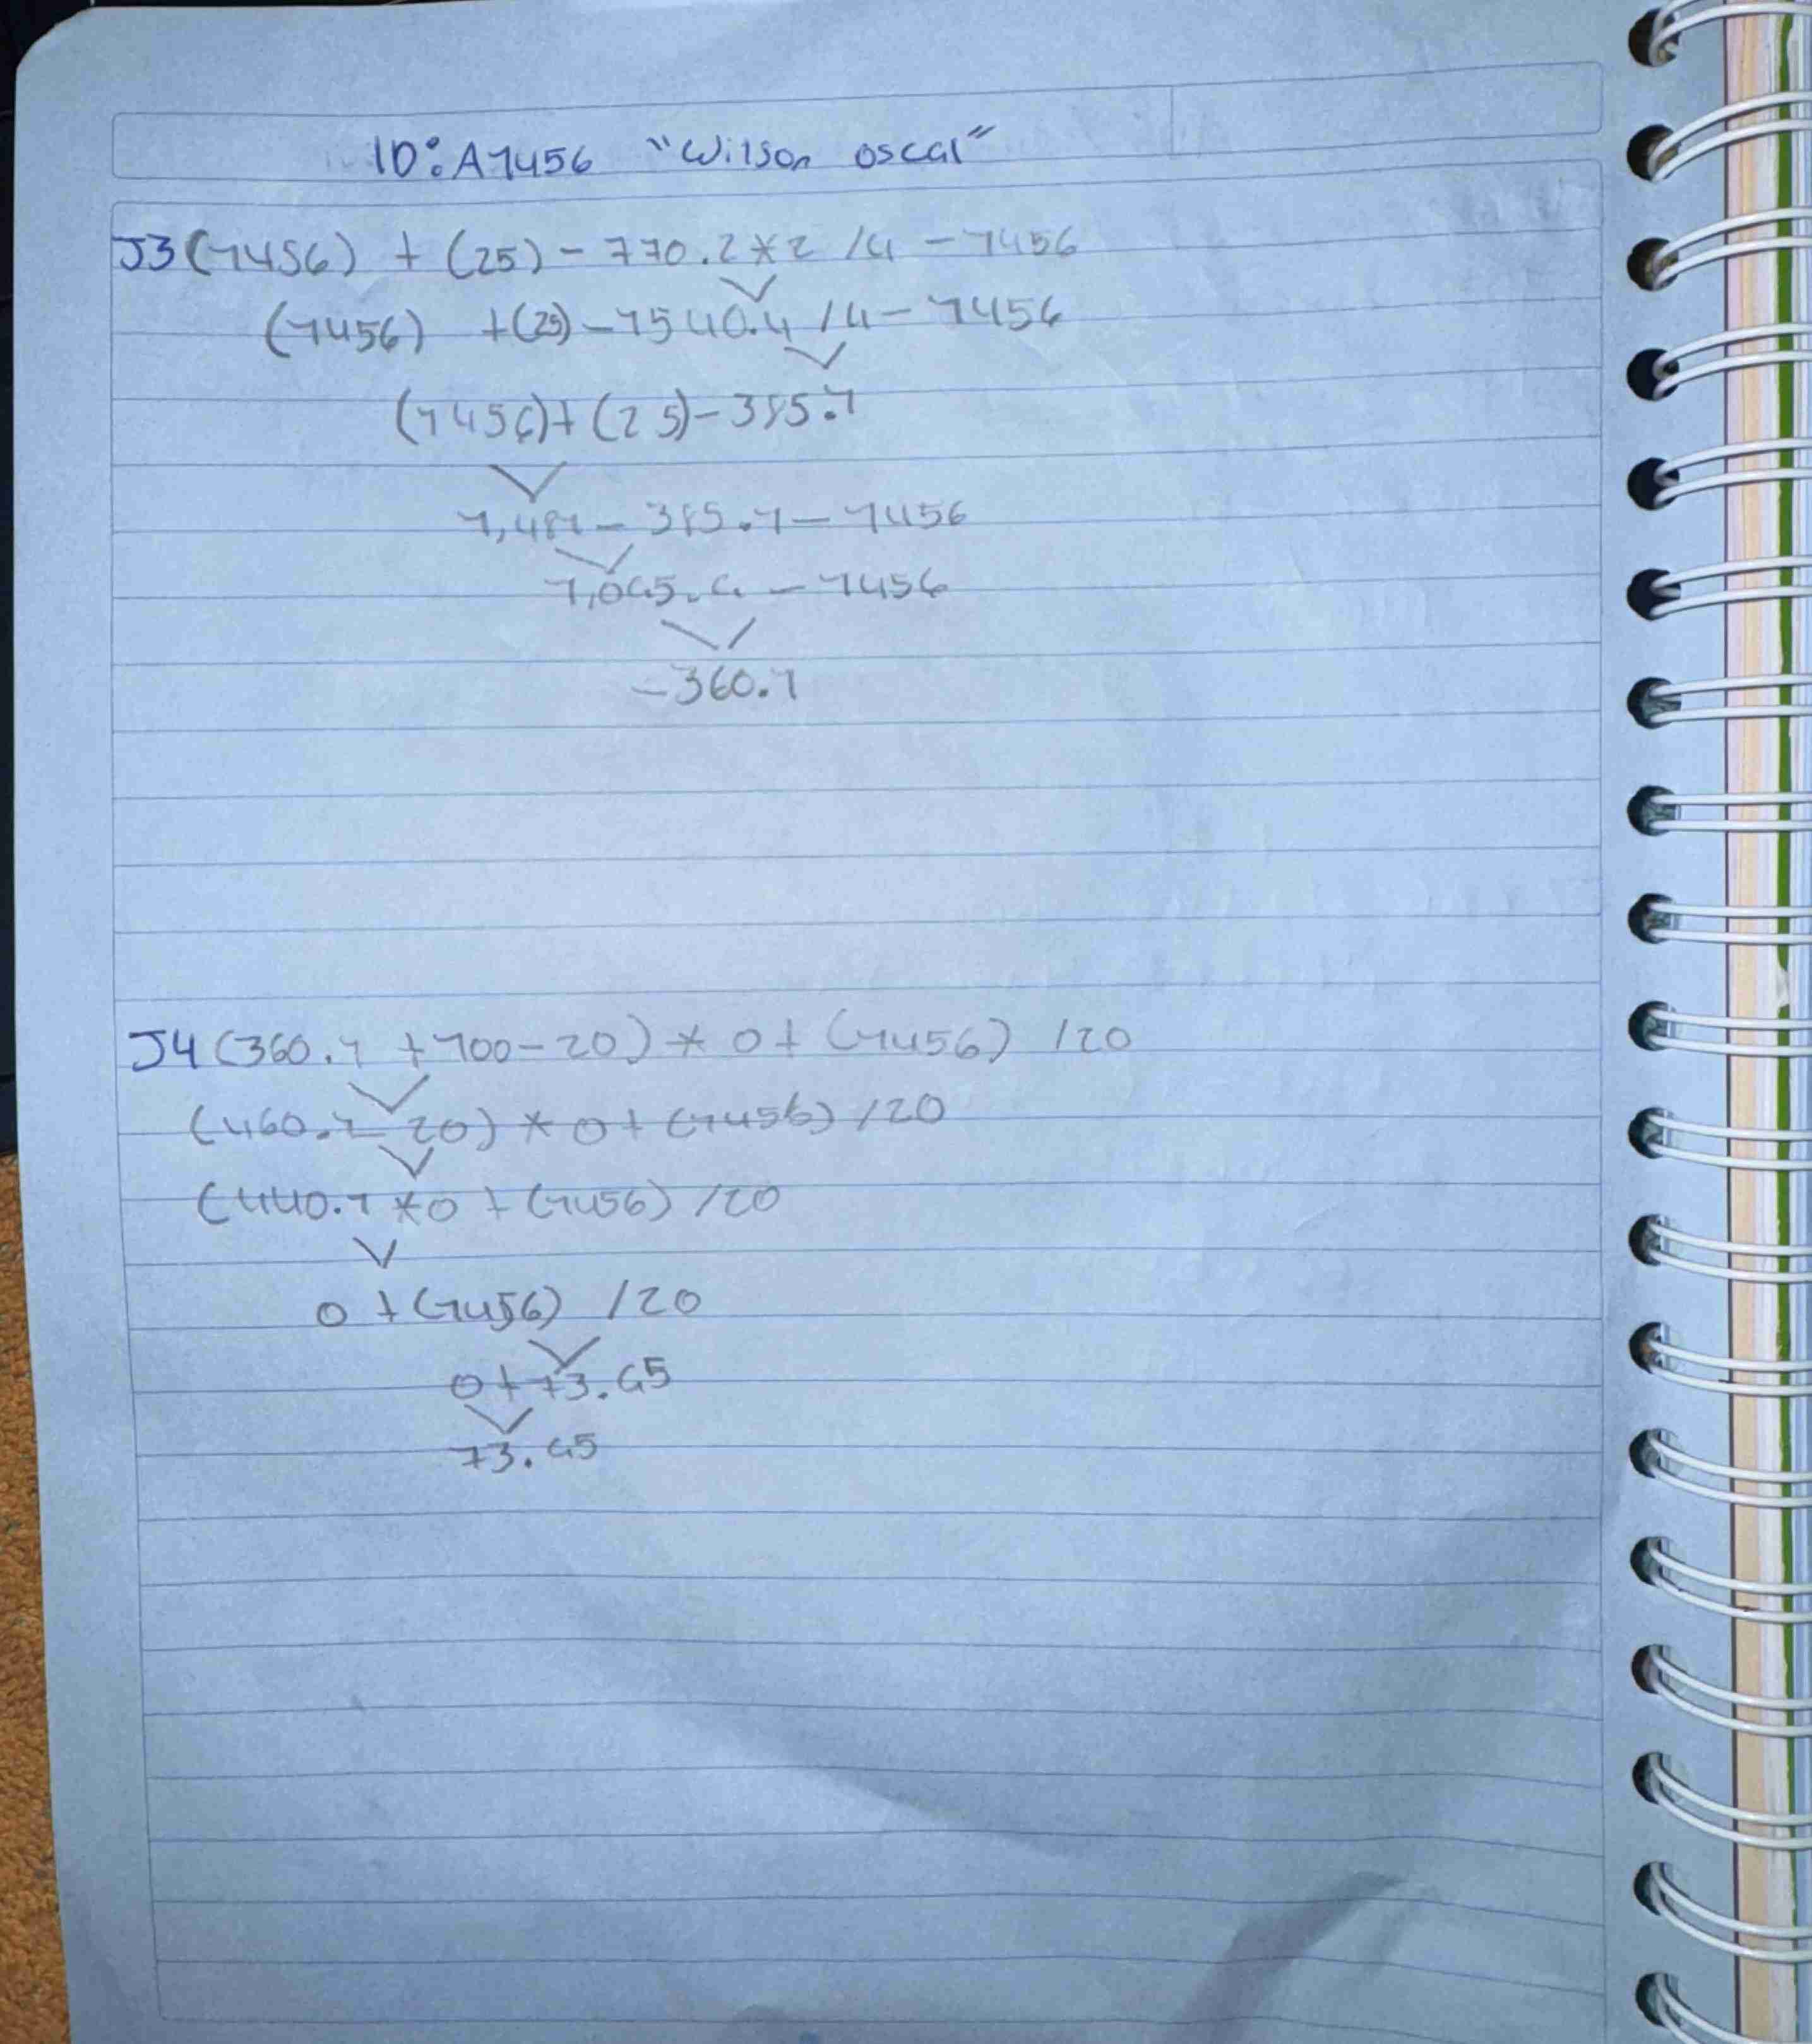 ID: A1456 "Wilson oscal"
J3 (1456) + (25) - 770.2 * 2 / 4 - 1456
(1456) + (25) - 1540.4 / 4 - 1456
(1456) + (25) - 385.1
1,481 - 385.1 - 1456
1,095.9 - 1456
- 360.1
J4 (360.1 + 100 - 20) * 0 + (1456) / 20
(460.1 - 20) * 0 + (1456) / 20
(440.1 * 0 + (1456) / 20
0 + (1456) / 20
0 + 73.95
73.95